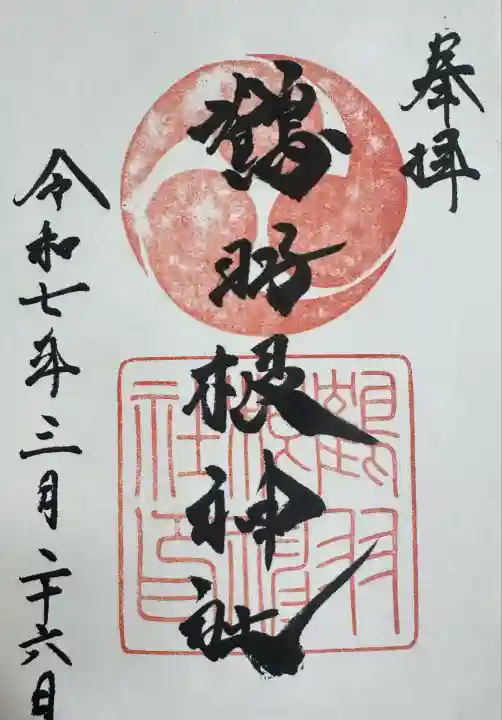 奉拝
鶴羽根神社
鶴羽根神社印
令和七年三月二十六日